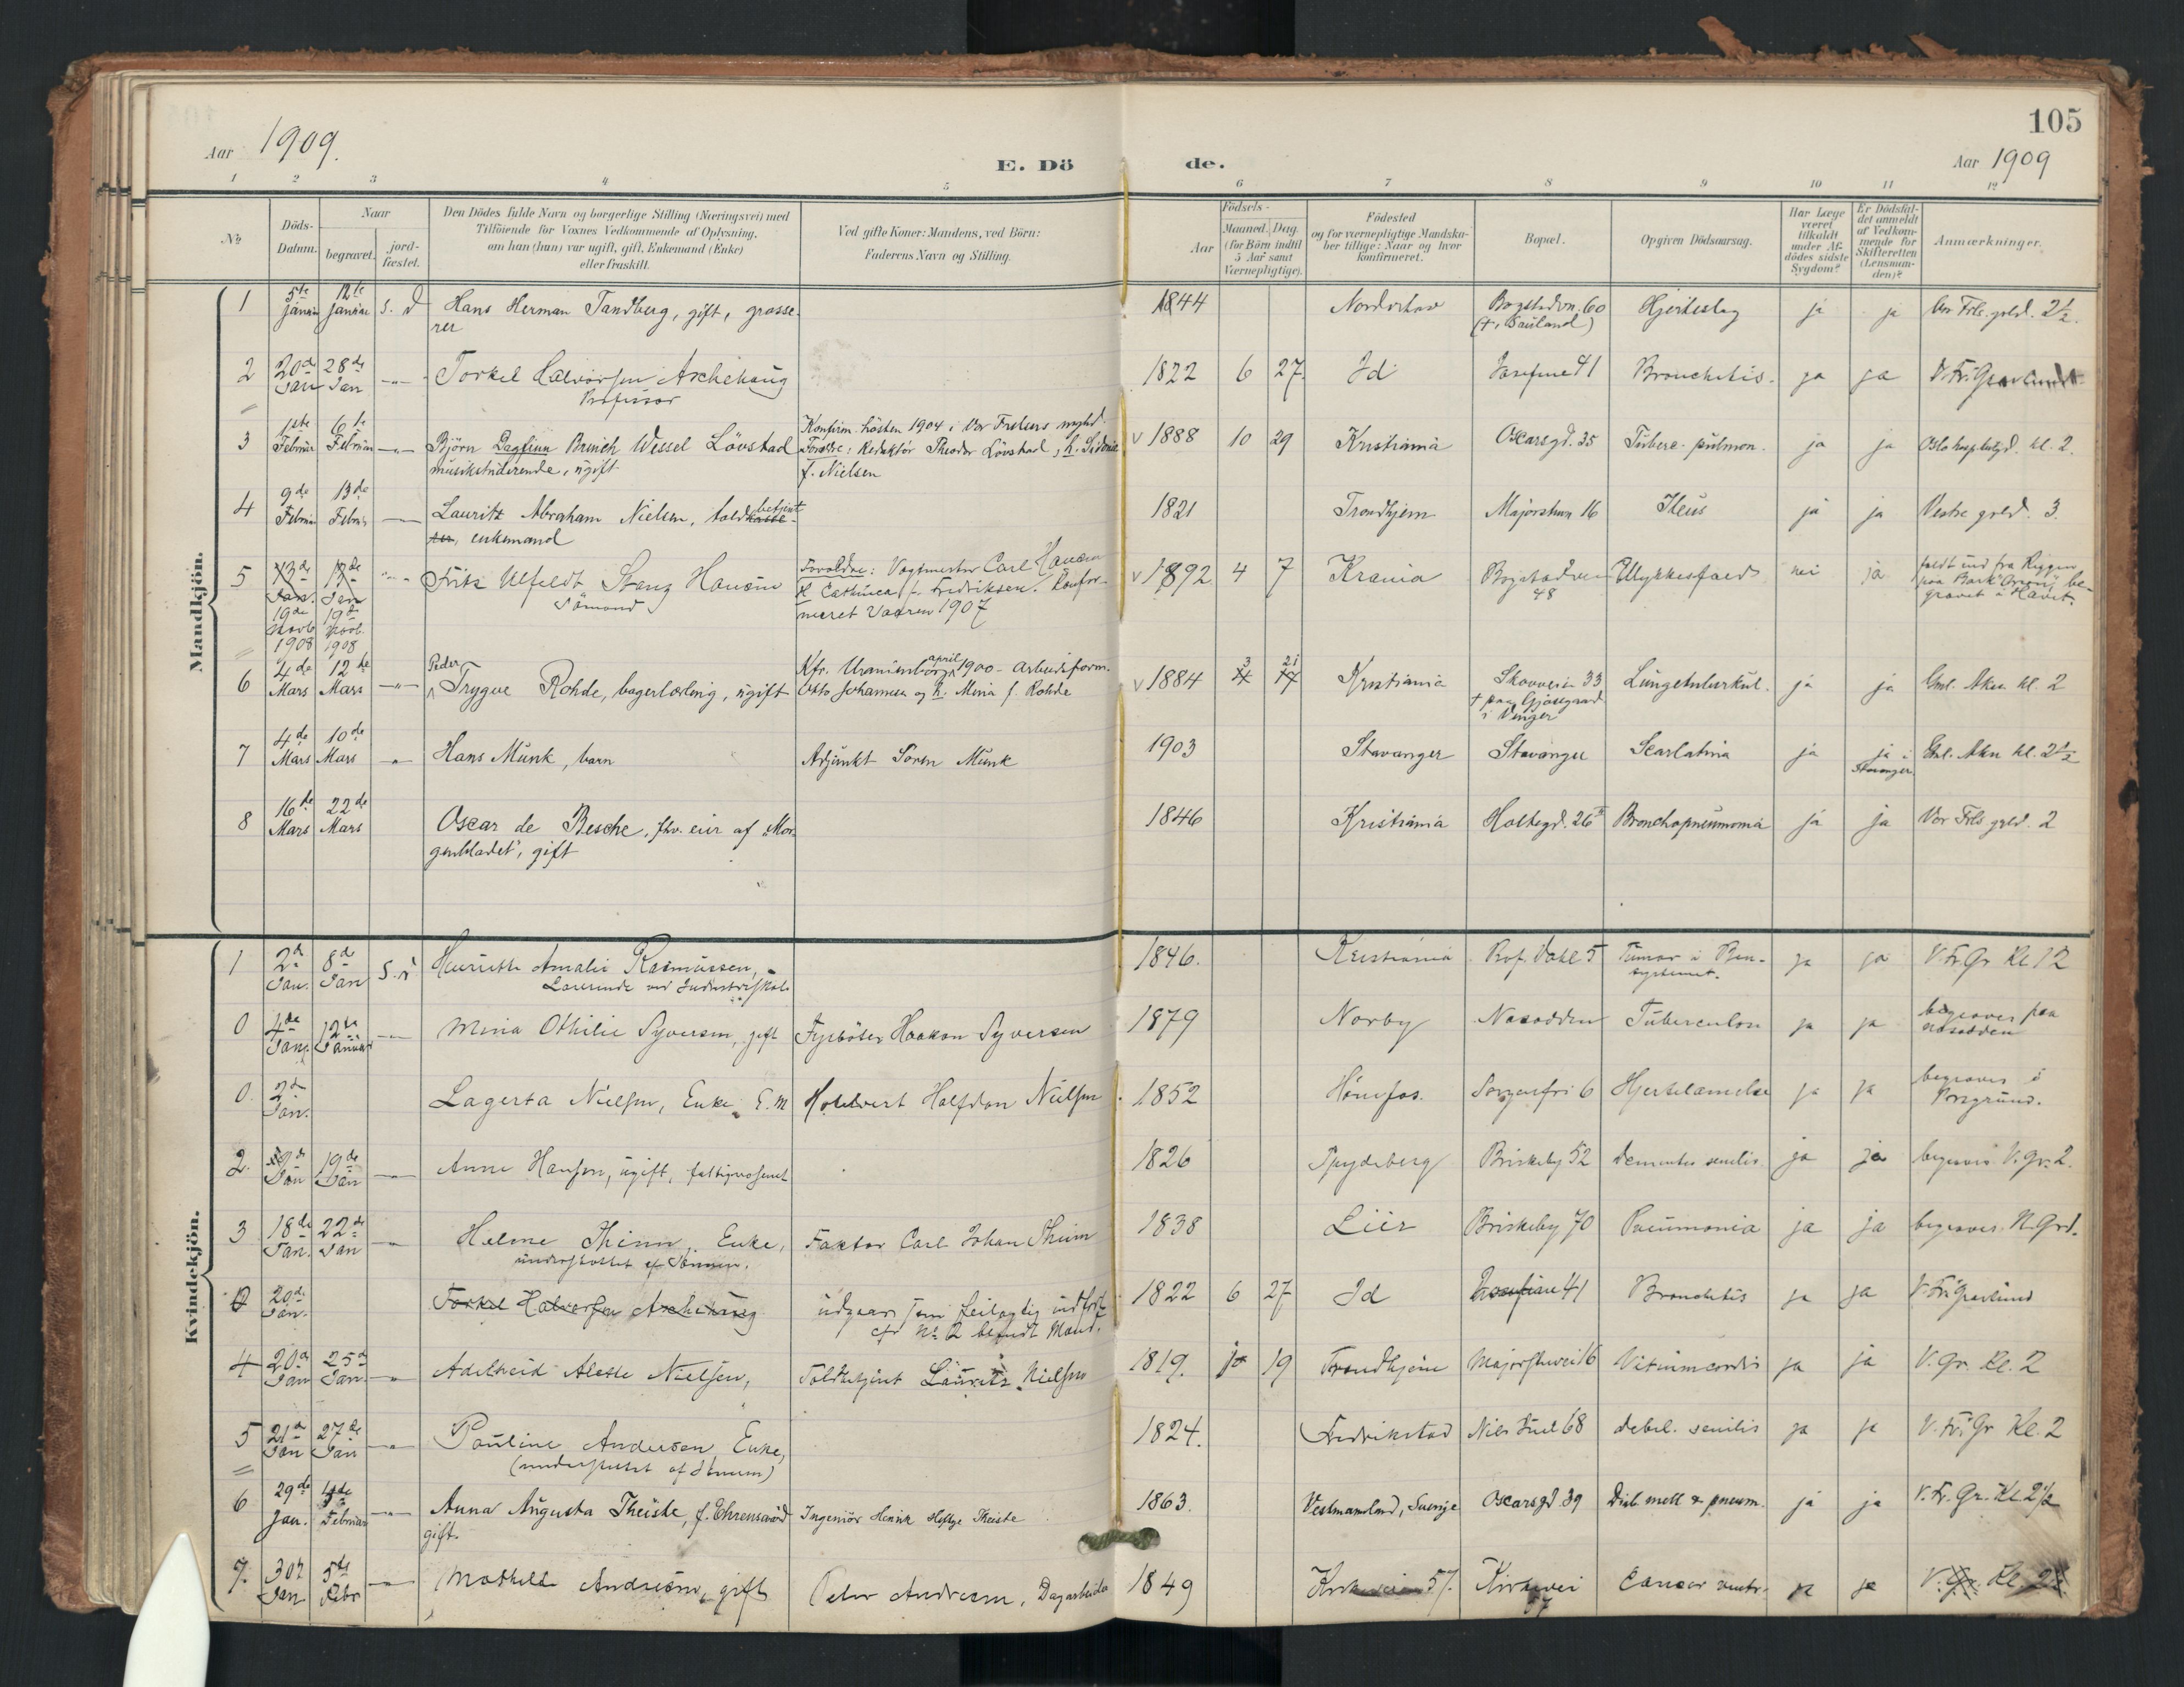 105
Aar 1909.
E. Döde.
Aar 1909
1 2 3 4 5 6 7 8 9 10 11 12
No
Döds-
Datum.
Naar
begravet.
jord-
fæstet.
Den Dödes fulde Navn og borgerlige Stilling (Næringsvei) med
Tilföiende for Voxnes Vedkommende af Oplysning,
om han (hun) var ugift, gift, Enkemand (Enke)
eller fraskilt.
Ved gifte Koner: Mandens, ved Börn:
Faderens Navn og Stilling.
Födsels-
Aar
Maaned. Dag.
(for Börn indtil
5 Aar samt
Værnepligtige).
Födested
og for værnepligtige Mandska-
ber tillige: Naar og hvor
konfirmeret.
Bopæl.
Opgiven Dödsaarsag.
Har Læge
været
tilkaldt
under Af-
dödes sidste
Sygdom?
Er Dödsfal-
det anmeldt
af Vedkom-
mende for
Skifteretten
(Lensman-
den)?
Anmærkninger.
Mandkjön.
1 5te Januar 12te Januar s. d Hans Herman Tandberg, gift, grosse-
rer
1844 Norderhov Bogstadvn. 60 Hjerteslag ja ja Vor Frls. grld. 2½.
2 20de Jan 28de Jan Torkel Halvorsen Aschehoug
Professor
1822 6 27 Id Josefine 41 Bronchitis. ja ja V. Fr. Gravlund
3 1ste Februar 6te Februar Björn Dagfinn Brinch Wessel Lövstad
musikstuderende, ugift
Konfirm. hösten 1904 i Vor Frelsers
Forældre: Redaktör Theodor Lövstad, h. Sidonie
f. Nielsen
v 1888 10 29 Kristiania Oscarsgd. 35 Tuberc. pulmon. ja ja Oslo kl. 2.
4 9de Februar 13de Febr. Lauritz Abraham Nielsen, toldbetjent
enkemand
1821 Trondhjem Majorstuvn 16 Ileus ja ja Vestre grld. 3.
5 13de Jan. 13de Jan
19de Novb. 1908 19de Novb. 1908
Fritz Ulfeldt Stang Hansen
Sömand
Forældre: Vagtmester Carl Hansen
& Cathinca f. Fredriksen. Konfir-
meret Vaaren 1907
v 1892 4 7 Krania Bogstadveien
48
Ulykkesfald nei ja faldt ned fra Riggen
paa Bark "Orion", be-
gravet i Havet.
6 4de Mars 12te Mars Peder
Trygve Rohde, bagerlærling, ugift
Kfr. Uranienborg april 1900 - Arbeidsform.
Otto Johannesen og h. Mina f. Rohde
v 1884 3 21 Kristiania Skovveien 33
+ paa Gjösegaard
i Vinger
Lungetuberkul. ja ja Gml. Aker kl. 2
7 4de Mars 10de Mars Hans Munk, barn Adjunkt Sören Munk 1903 Stavanger Stavanger Scarlatina ja ja i
Stavanger.
Gml. Aker kl. 2½
8 16de Mars 22de Mars Oscar de Besche, fhv. eier af "Mor-
genbladet", gift
1846 Kristiania Holtegd. 26 Bronchopneumonia ja ja Vor Frls grld. 2
Kvindekjön.
1 2d Jan. 8d Jan s. d Henriette Amalie Rasmussen,
Lærerinde ved Industriskole
1846. Kristiania Prof. Dahl 5 Tumor i Ben-
systemet.
ja ja V. Fr. Gr Kl 12
0 4de Jan. 12te Januar Mina Othilie Syversen, gift Fyrböter Haakon Syversen 1879 Norby Nesodden Tuberculose ja ja begraves paa
Nesodden
0. 2d Jan. Lagerta Nielsen, Enke E.M Halfdan Nielsen 1852 Hönefos. Sorgenfri 6 Hjertelammelse ja ja begraves i
Porsgrund.
2. Jan 19de Jan Anne Hansen, ugift, fattigunderst. 1826 Spydeberg Briskeby 52 Dementia senilis ja ja begraves V. Gr. 2.
3 18de Jan. 22de Jan Helene Thinn, Enke,
understöttet af Sönnen.
Faktor Carl Johan Thinn 1838 Lier Briskeby 70 Pneumonia ja ja begraves N. Grd.
0 20de Jan. Torkel Halvorsen Aschehoug udgaar som feilagtig indfört
cfr No 2 blandt Mænd.
1822 6 27 Id Josefine 41 Bronchitis ja ja V. Fr. Gravlund
4 20d Jan 25d Jan. Adelheid Alette Nielsen, Toldbetjent Lauritz Nielsen 1819. 10 19 Trondhjem Majorstuvei 16 Vitium cordis ja ja V. Gr. Kl. 2
5 21d Jan 27de Jan Pauline Andersen Enke,
(understöttet af Sönnen)
1824. Fredrikstad Niels Juel 68 debil. senilis ja ja V. Fr. Gr Kl. 2
6 29de Jan. 4de Februar Anna Augusta Theiste, f. Ehrensvärd
gift.
Ingeniör Henrik Heftye Theiste 1863. Vestmanland, Sverige Oscarsgd. 39 Diab. mell & pneum. ja ja V. Fr. Gr. Kl 2½
7. 30d Jan 5te Febr Mathilde Andresen, gift Peter Andresen, Dagarbeider 1849 57. Kirkevei
57
Cancer ventr. ja ja V. Gr. Kl. 2